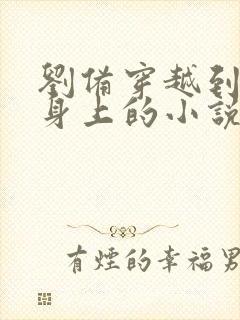 劉備穿越到
身上的小說
有煙的幸福男